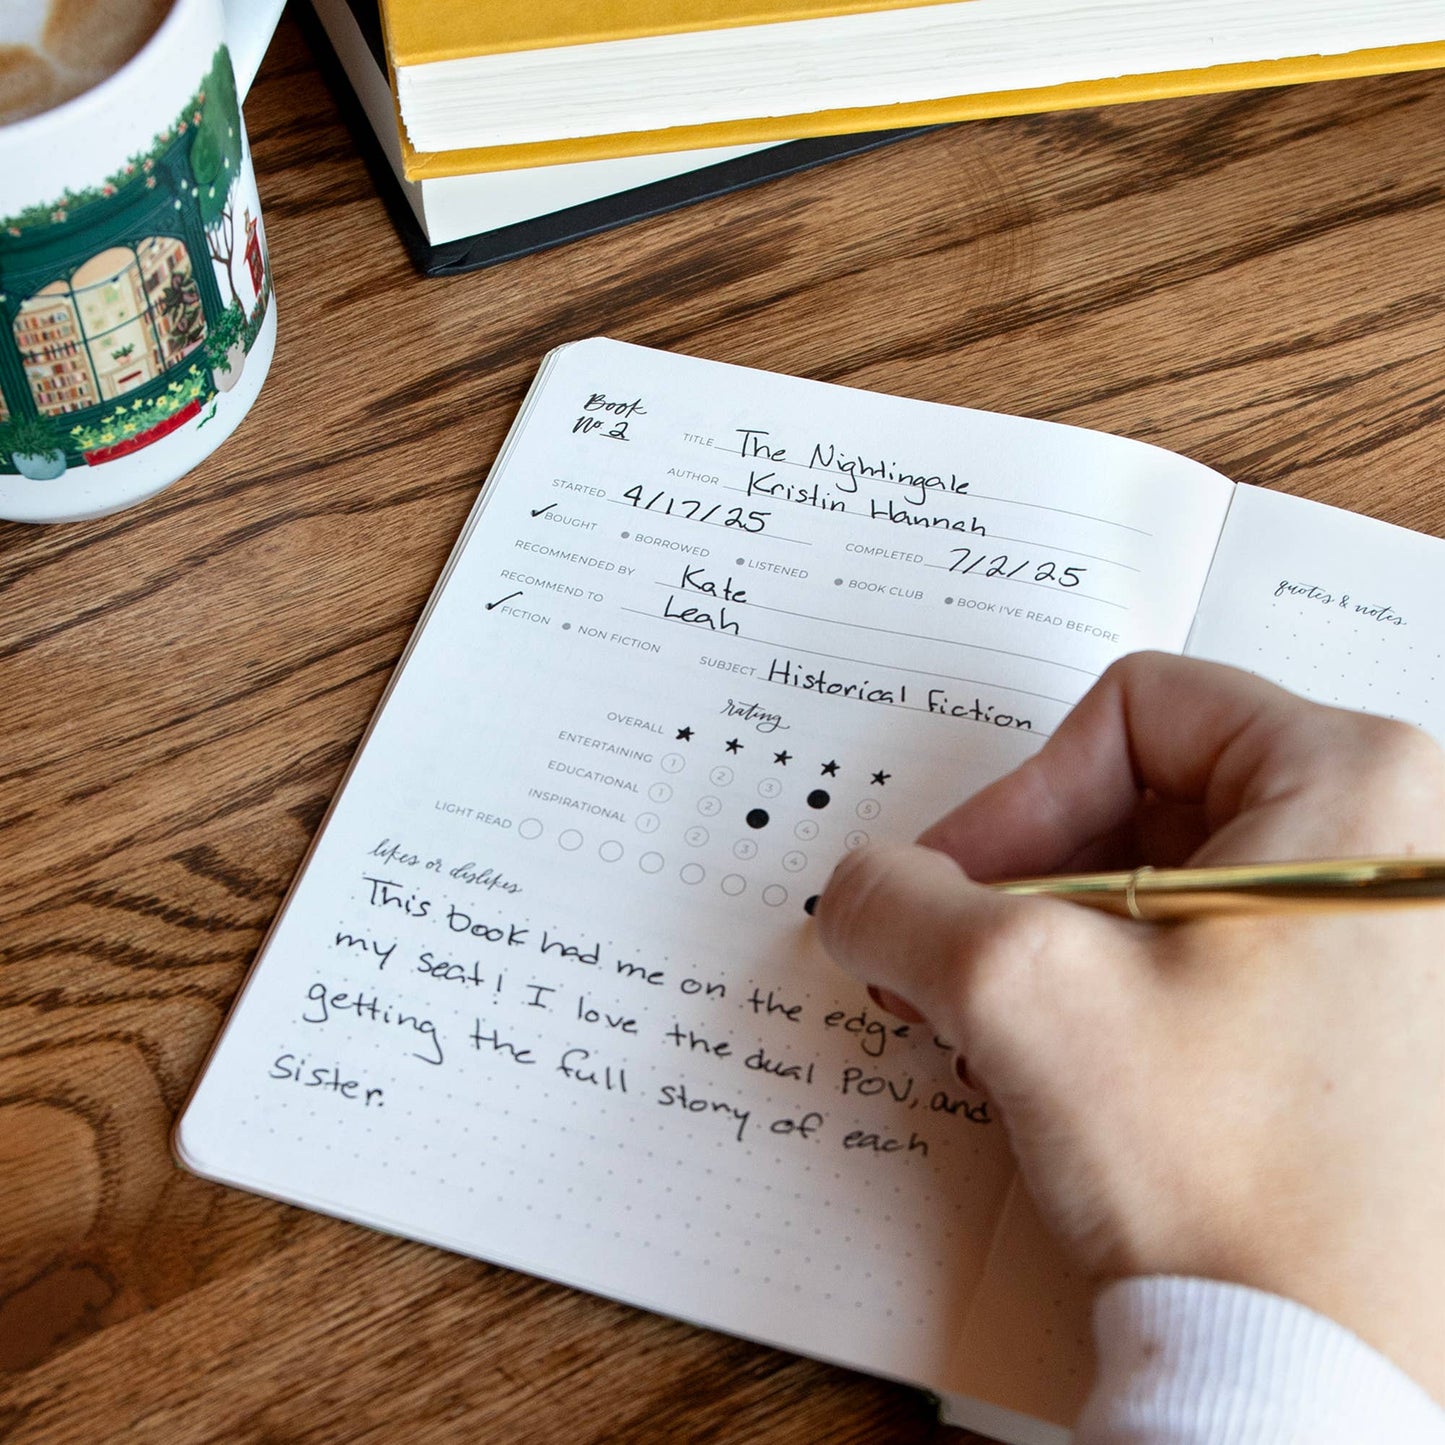 Book
No. 2
TITLE The Nightingale
AUTHOR Kristin Hannah
STARTED 4/17/25 COMPLETED 7/2/25
BOUGHT BORROWED LISTENED BOOK CLUB BOOK I'VE READ BEFORE
RECOMMENDED BY Kate
RECOMMEND TO Leah
FICTION NON FICTION SUBJECT Historical fiction
rating
OVERALL
ENTERTAINING 1 2 3 5
EDUCATIONAL 1 2 4 5
INSPIRATIONAL 1 2 3 4
LIGHT READ
likes or dislikes
This book had me on the edge
my seat! I love the dual POV, and
getting the full story of each
sister.
quotes & notes